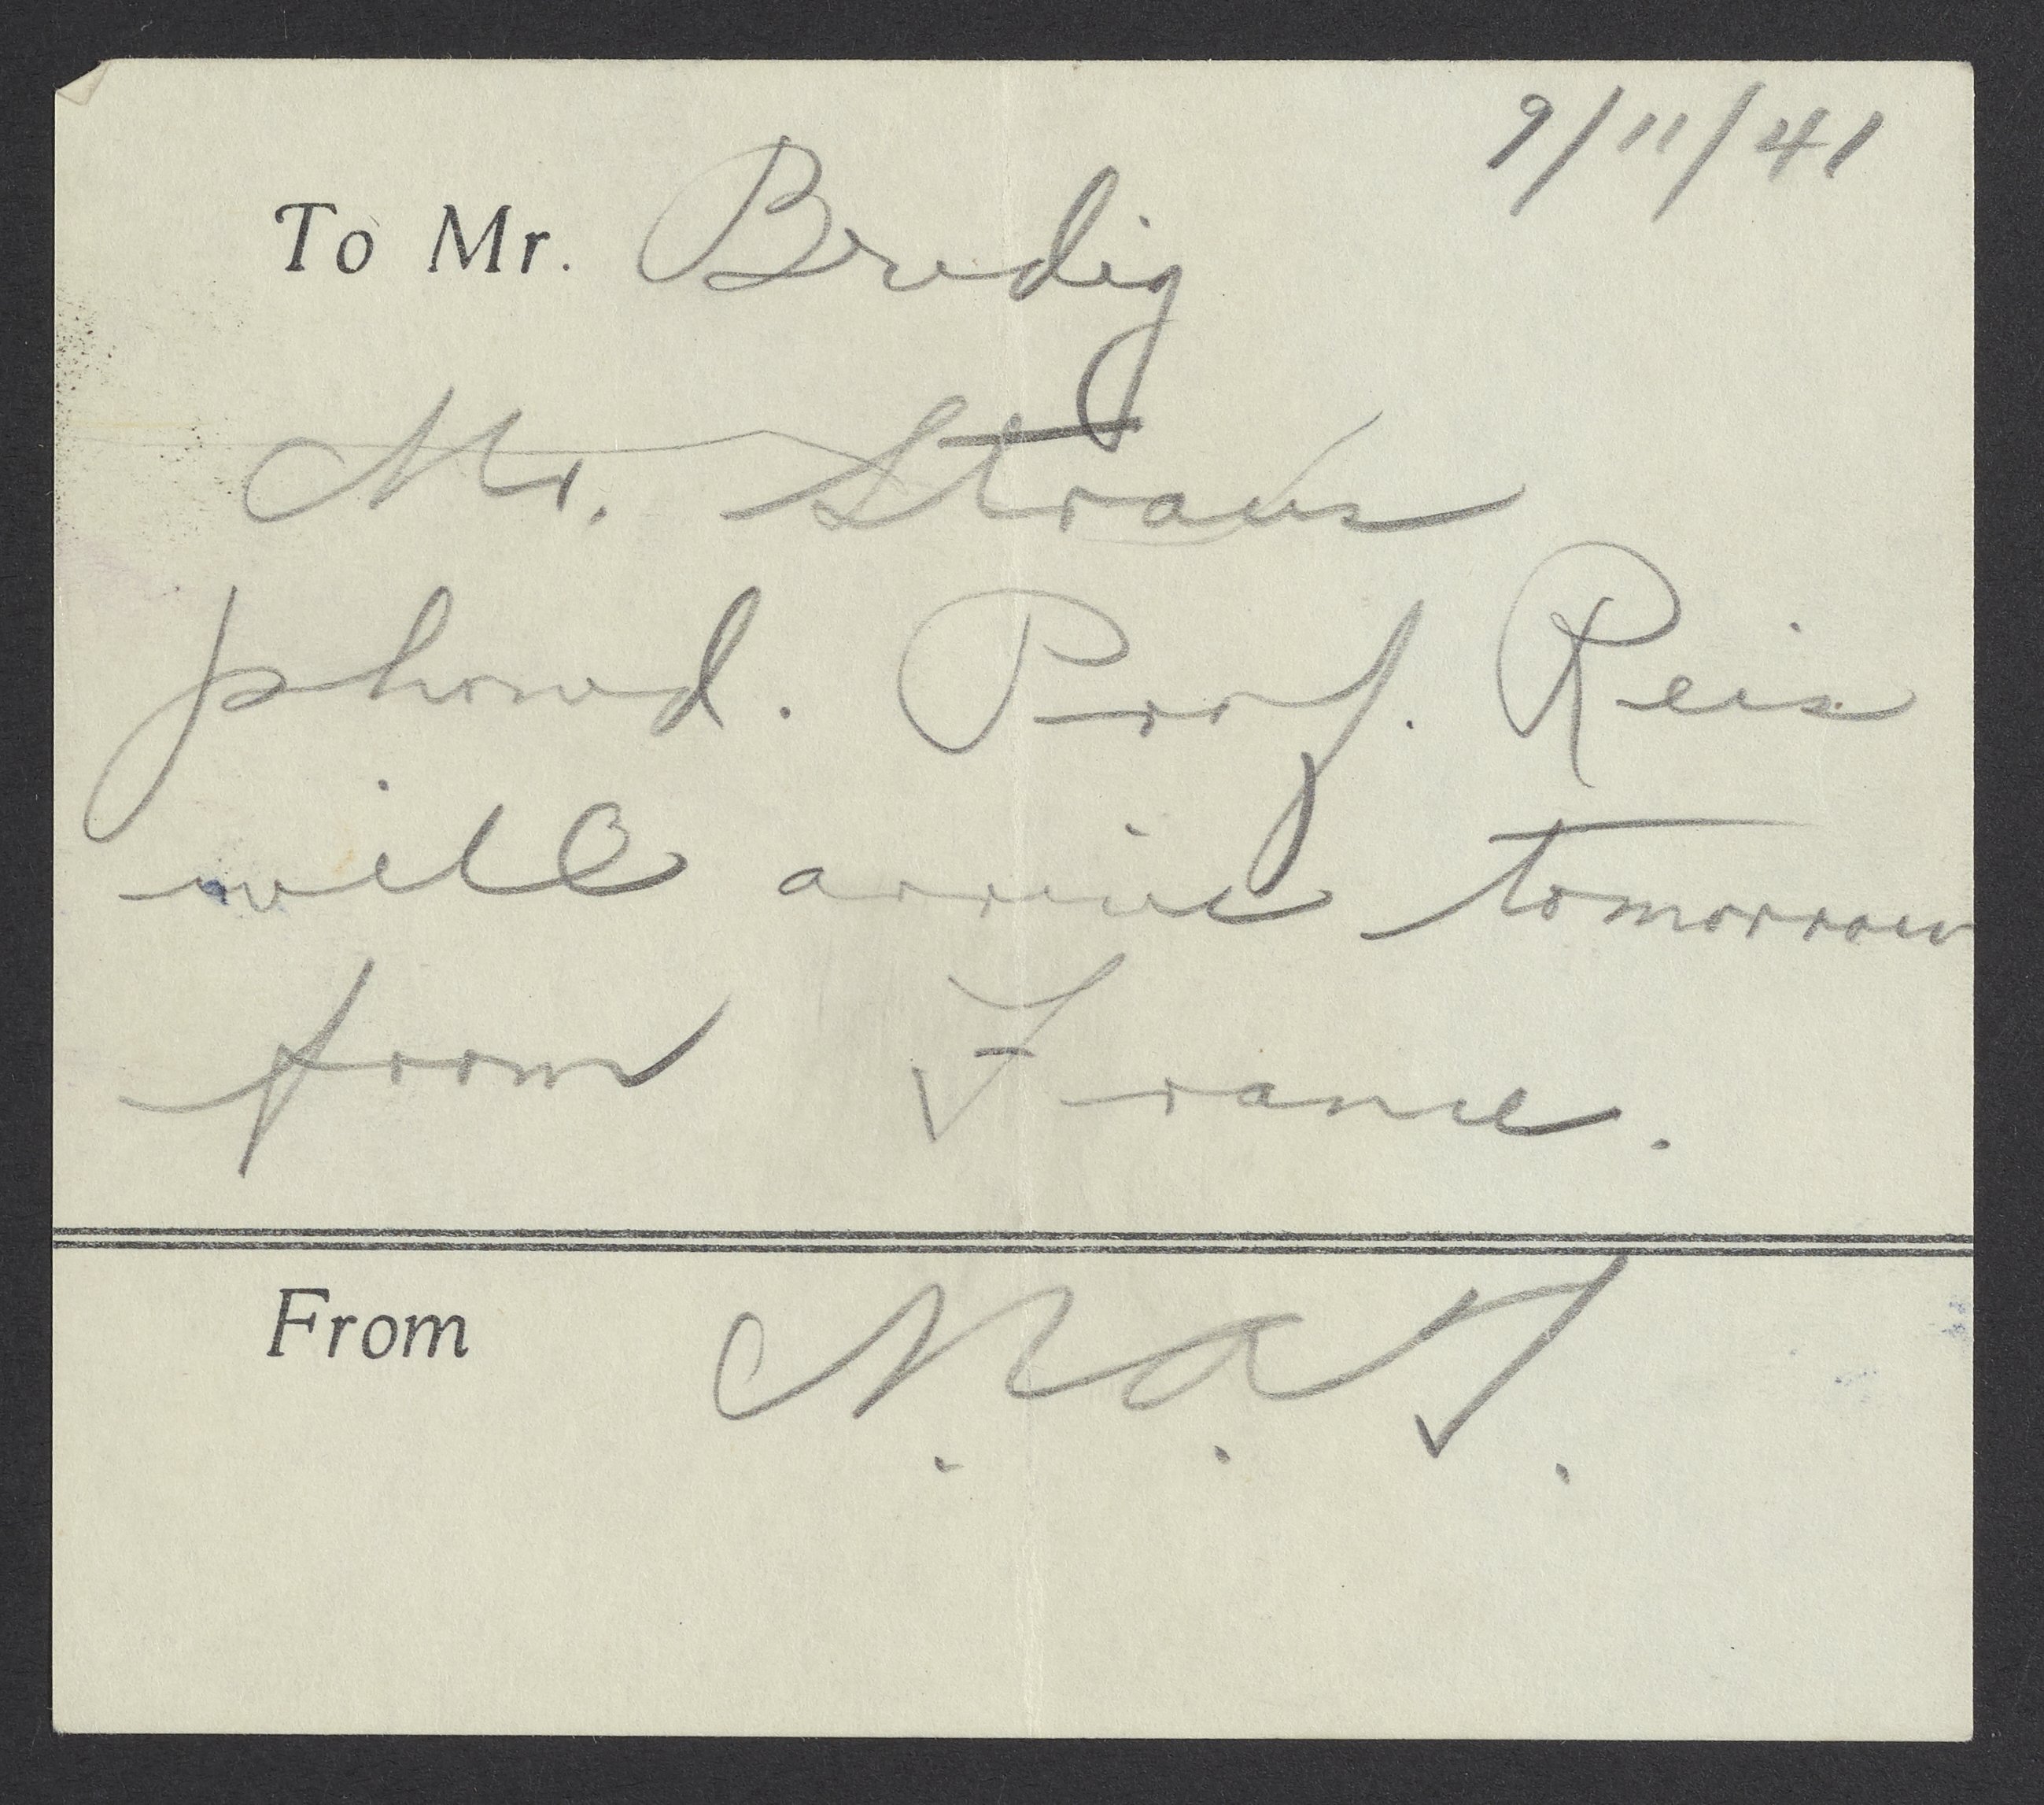 9/11/41
To Mr. Brodig
Mr. Straus
phoned. Prof. Reis
will arrive tomorrow
from France.
From M.A.T.